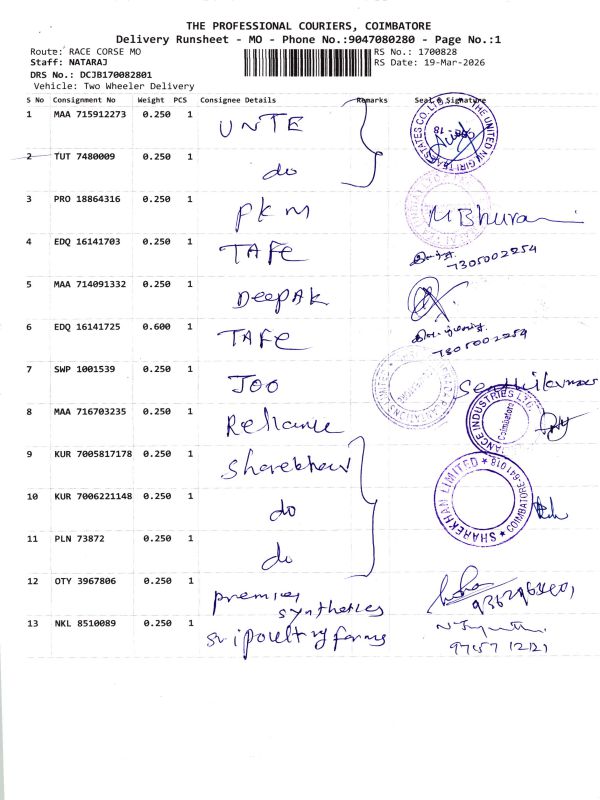 THE PROFESSIONAL COURIERS, COIMBATORE
Delivery Runsheet - MO - Phone No.:9047080280 - Page No.:1
Route: RACE CORSE MO
RS No.: 1700828
Staff: NATARAJ
RS Date: 19-Mar-2026
DRS No.: DCJB170082801
Vehicle: Two Wheeler Delivery
S No Consignment No Weight PCS Consignee Details Remarks Seal & Signature
1 MAA 715912273 0.250 1 UNTE
2 TUT 7480009 0.250 1 do
3 PRO 18864316 0.250 1 PKM
4 EDQ 16141703 0.250 1 TAFE 7305002254
5 MAA 714091332 0.250 1 Deepak
6 EDQ 16141725 0.600 1 TAFE 7305002254
7 SWP 1001539 0.250 1 JOO
8 MAA 716703235 0.250 1 Reliance
9 KUR 7005817178 0.250 1 Sharekhan
SHAREKHAN LIMITED * COIMBATORE-641018 *
10 KUR 7006221148 0.250 1 do
11 PLN 73872 0.250 1 do
12 OTY 3967806 0.250 1 premier synthetics
13 NKL 8510089 0.250 1 sri poultry farms
97157 12121